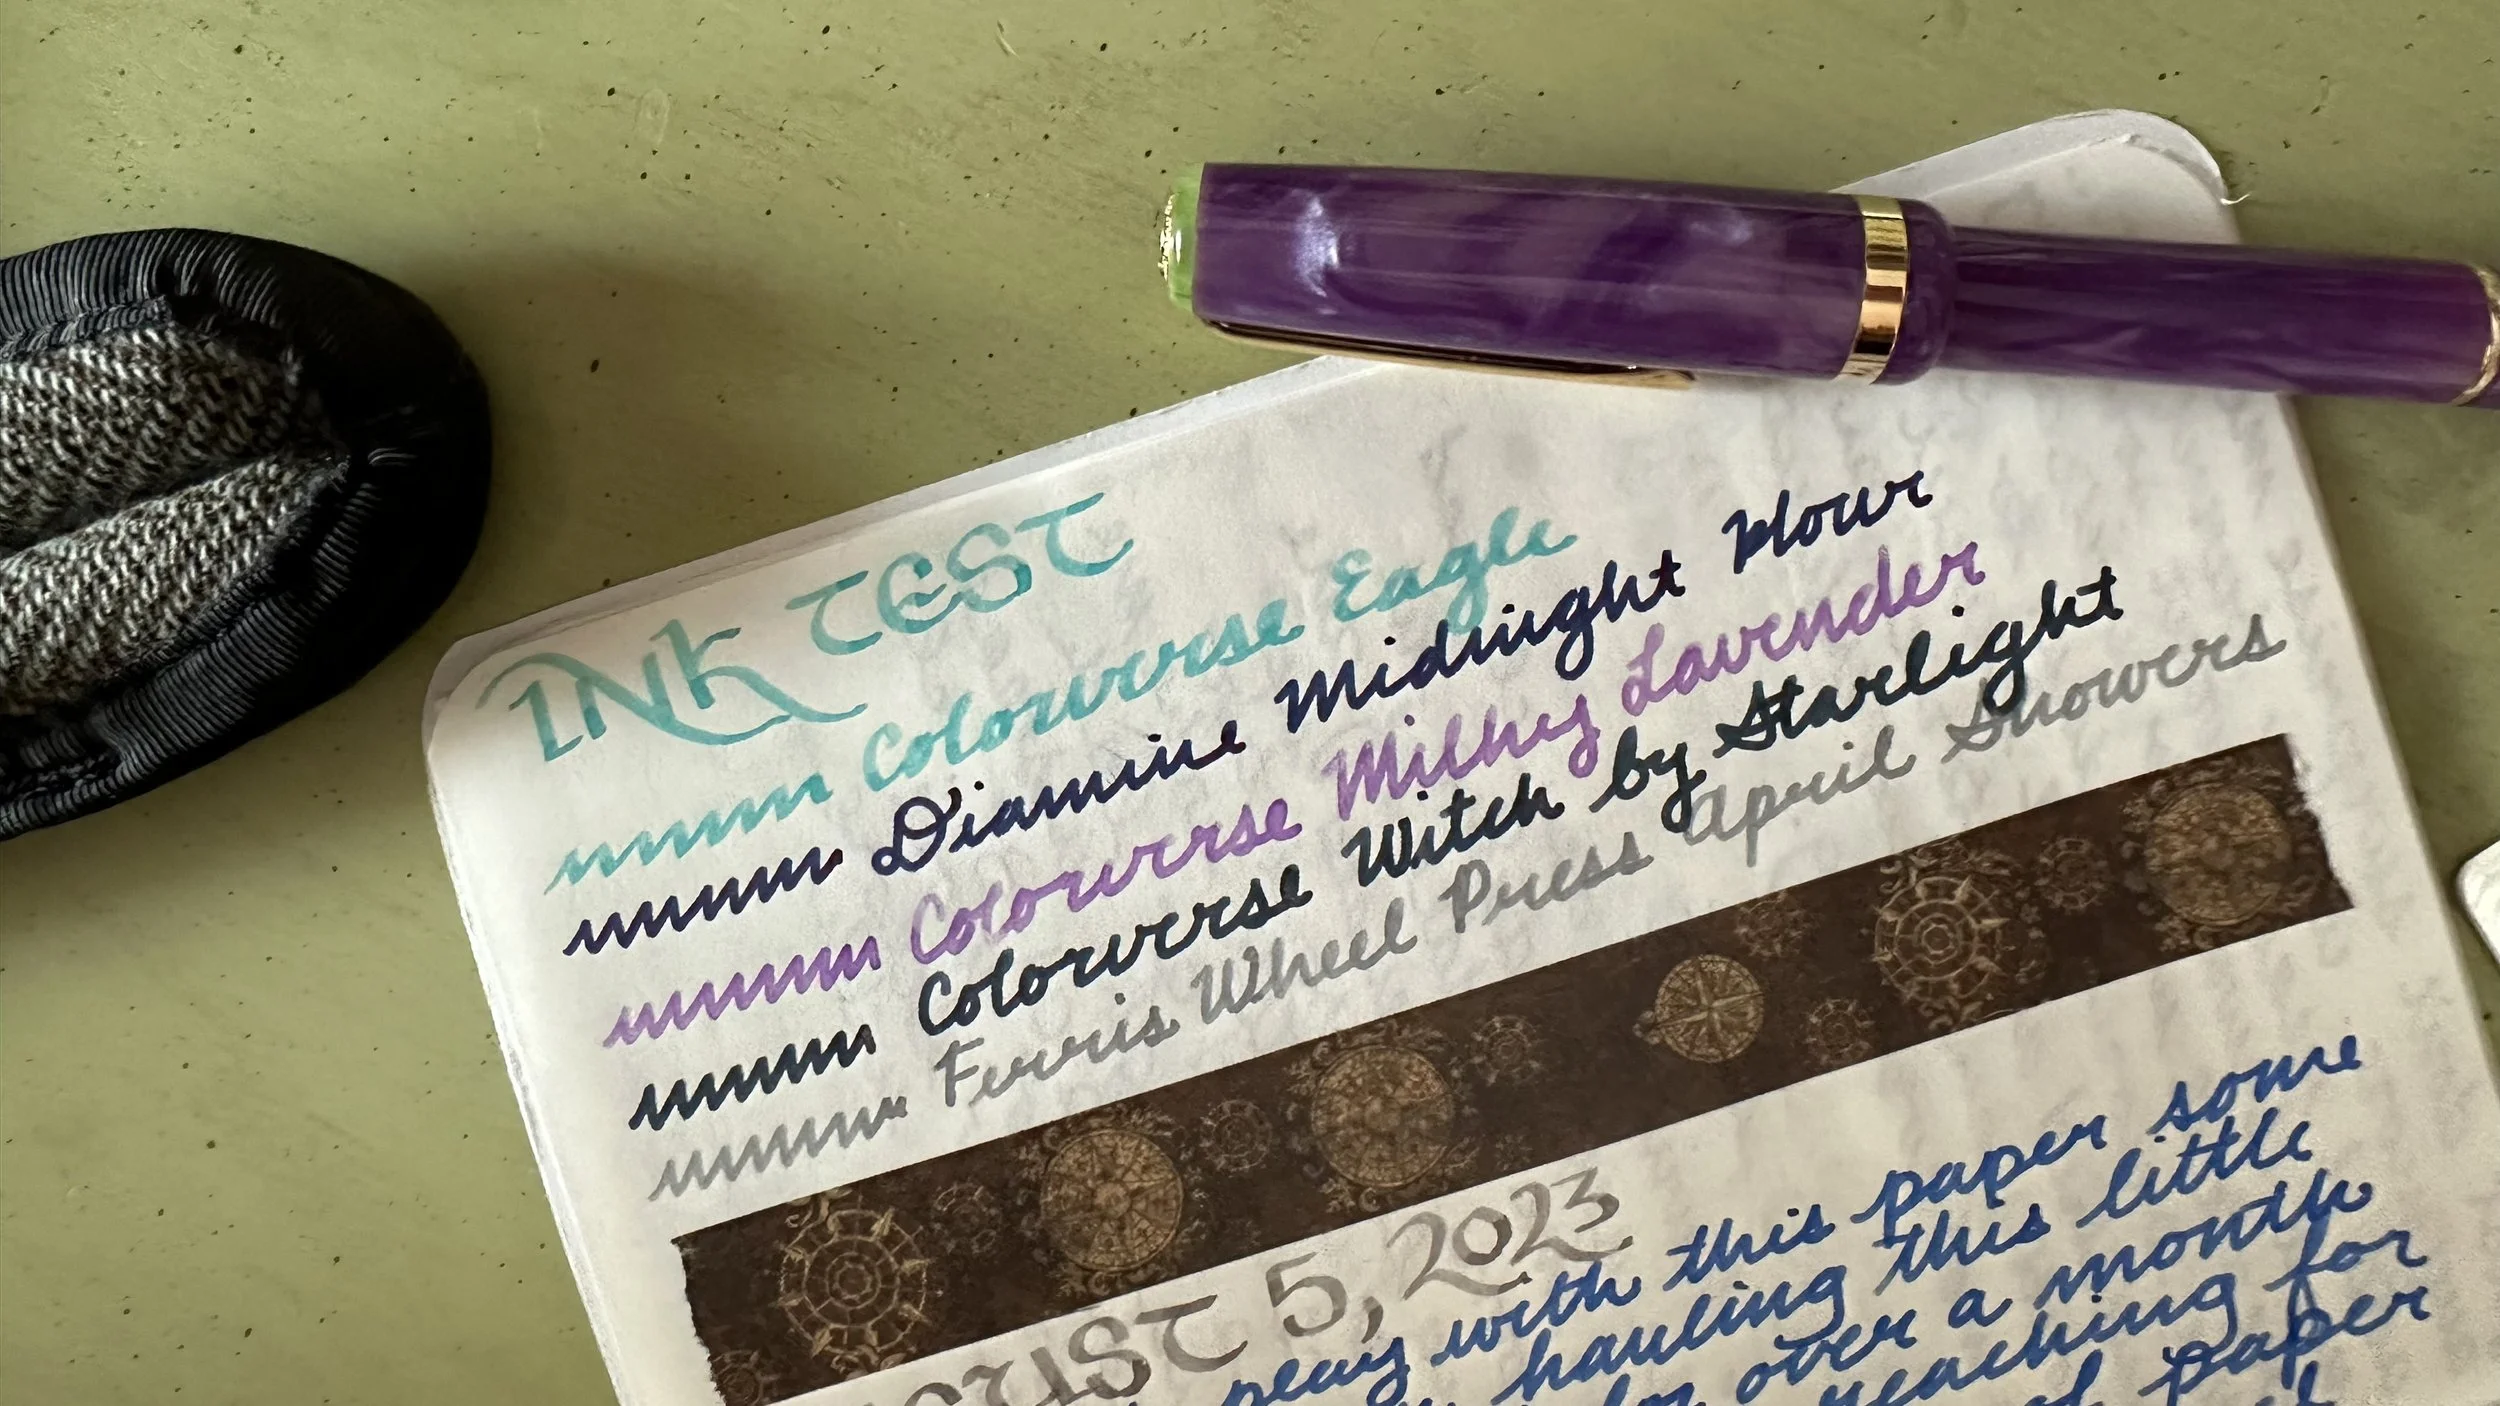 INK TEST
mmmm Colorverse Eagle
mmmm Diamine Midnight Hour
mmmm Colorverse Milky Lavender
mmmm Colorverse Witch by Starlight
mmmm Ferris Wheel Press April Showers
5, 2023
play with this paper some
hauling this little
for over a month
reaching for
of paper